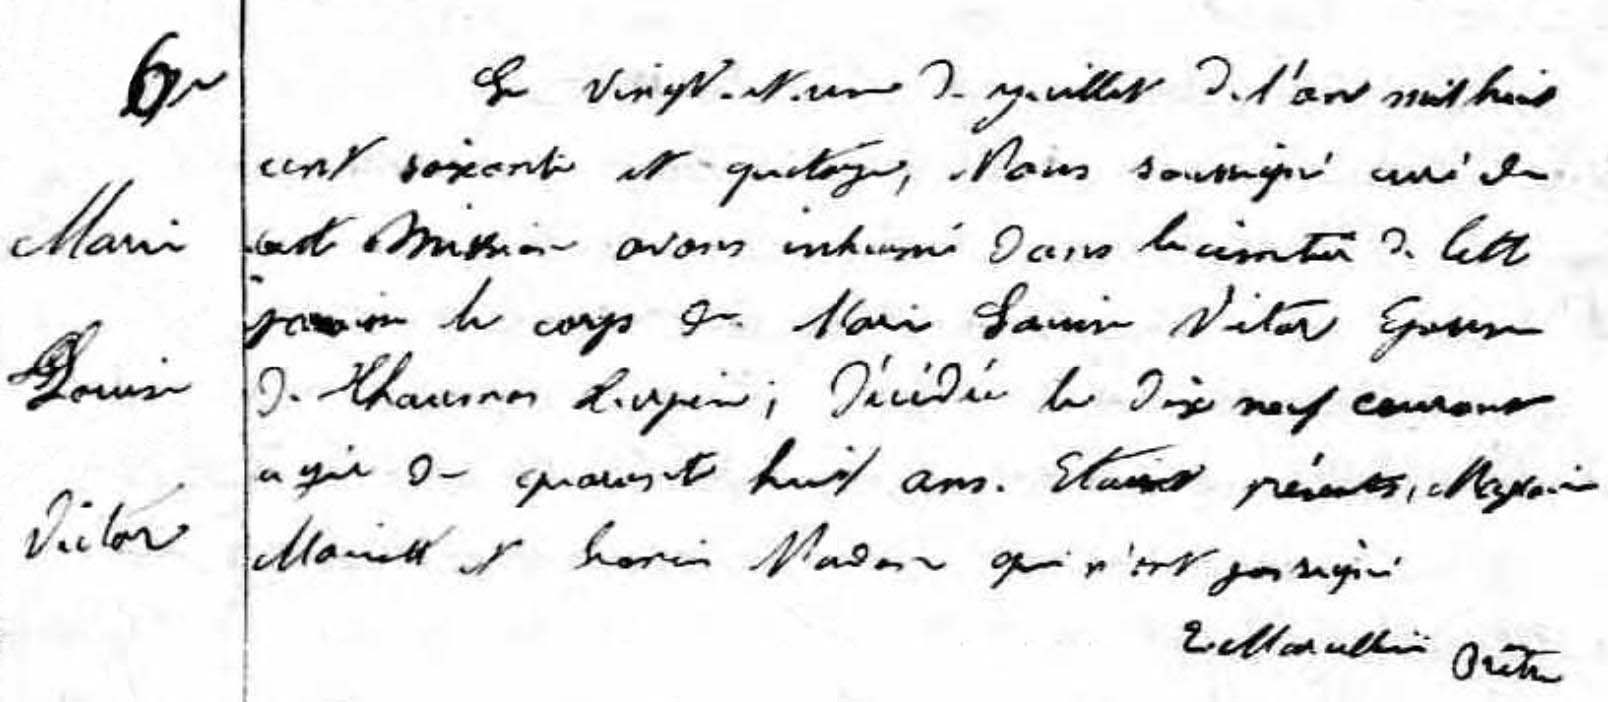 6
Marie
Louise
Victor
Le vingt-et-une de juillet de l'an mil huit
cent soixante et quatorze, Nous soussigné curé de
cette Mission avons inhumé dans le cimetière de cette
paroisse le corps de Marie Louise Victor Epouse
de décédée le dix neuf courant
agée de quarante huit ans. Etaient présents,
et qui n'ont pas signé
E. Marcellin Prêtre